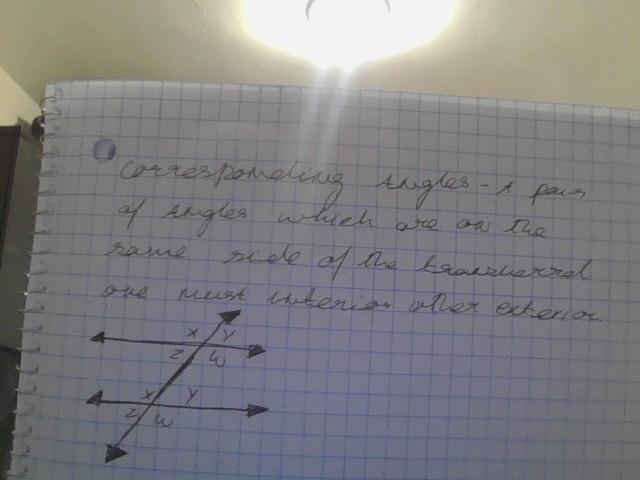 Corresponding Angles - A pair
of Angles which are on the
same side of the transversal
one must interior other exterior
X Y
Z W
X Y
Z W